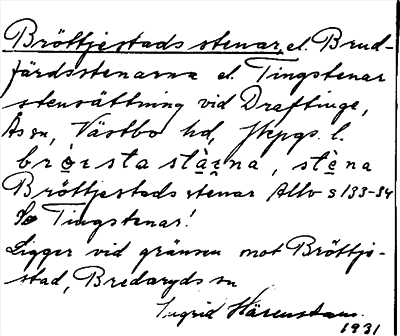 Bröttjestads stenar, el. Brud-
färdsstenarna el. Tingstenar
stensättning vid Draftinge,
Ås sn, Västbo hd, Jkpgs. l.
brö̀rsta stæ̀na, stèna
Bröttjestads stenar Allv s 133-34
Se Tingstenar!
Ligger vid gränsen mot Bröttje-
stad, Bredaryds sn
Ingrid Härenstam.
1931